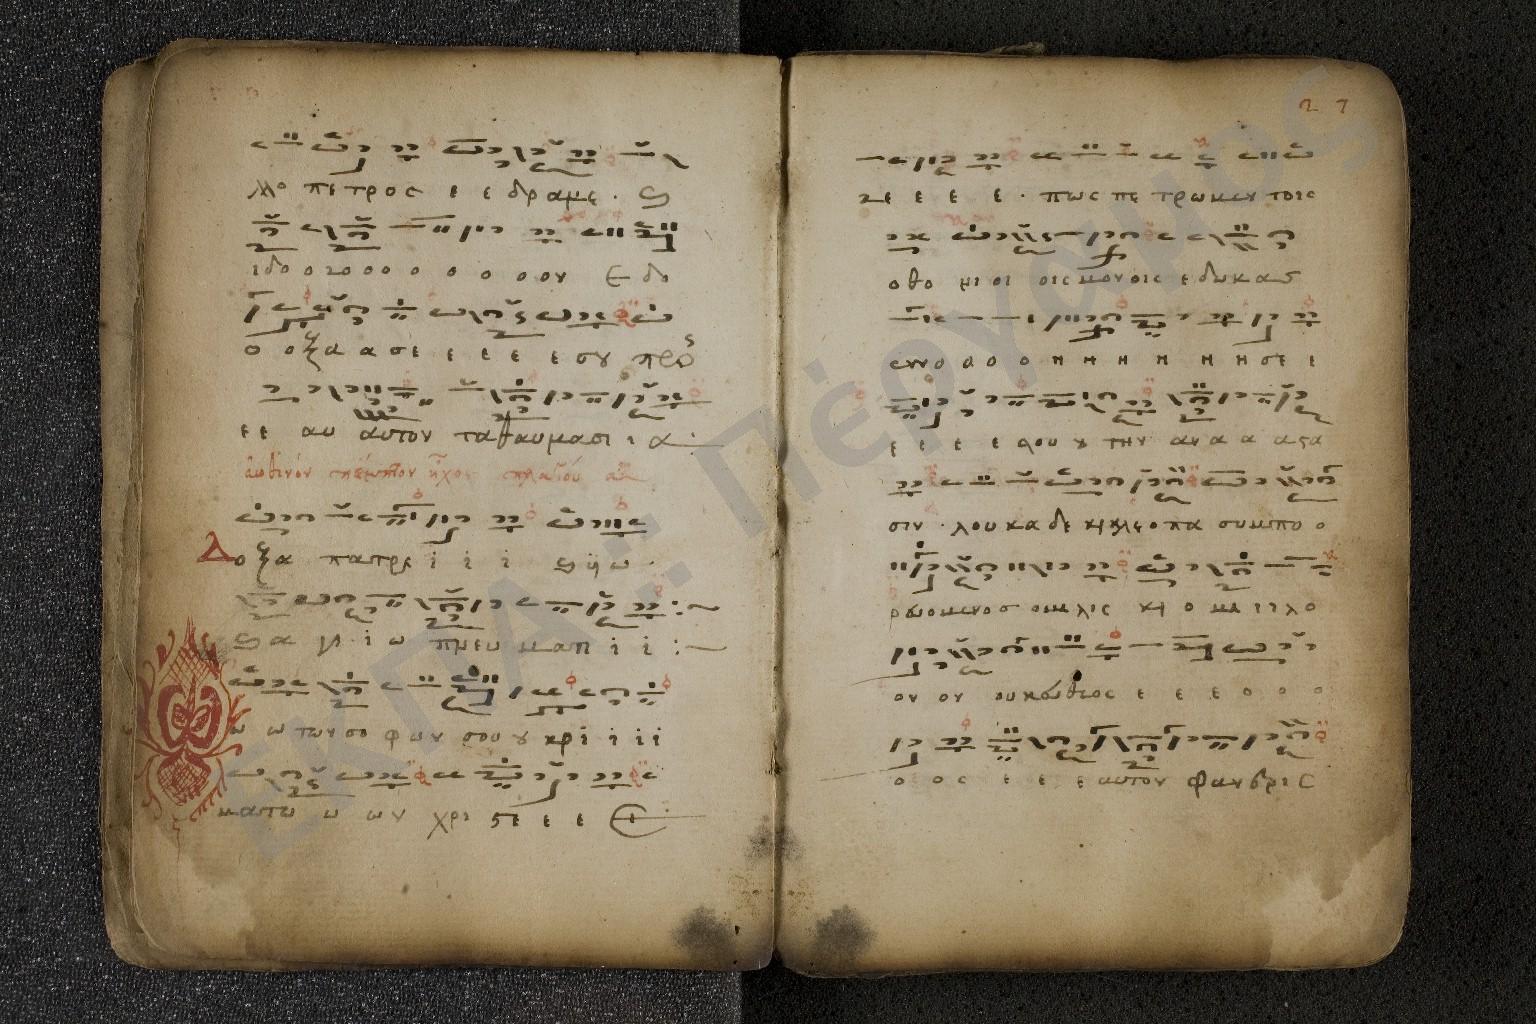 μο πετρος ε ε δραμε · ϛ
ιδο ο ζο ο ο ο ο ο ο ου ε δο
ο οξα α σε ε ε ε ε σου προς
ε ε αυ αυτον τα θαυμασι ι α ·
ἑωθινόν πέμπτον ἦχος πλαγίου α
Δοξα πατρι ι ι ι ϛ υϊω ·
ϛ α γι ι ω πνευματι ι ι :
ω ω των σο φων σου ου κρι ι ι ι
ματω ω ων χρι ϛε ε ε
27
ζε ε ε ε · πως πε τρω μεν τοις
οθο νι οι οις μονοις εδωκας
εννο ο ο ο η η η η η η σε ι
ε ε ε ε του ου την αν α α αϛα
σιν · λουκα δε κλεοπα συμπο ο
ρευομενος ομιλις ο μι ι ι λο
ου ου ουκ ευθεος ε ε ε ο ο ο
ο ος ε ε ε αυτον φανερις
ΕΚΠΑ: Πέργαμος